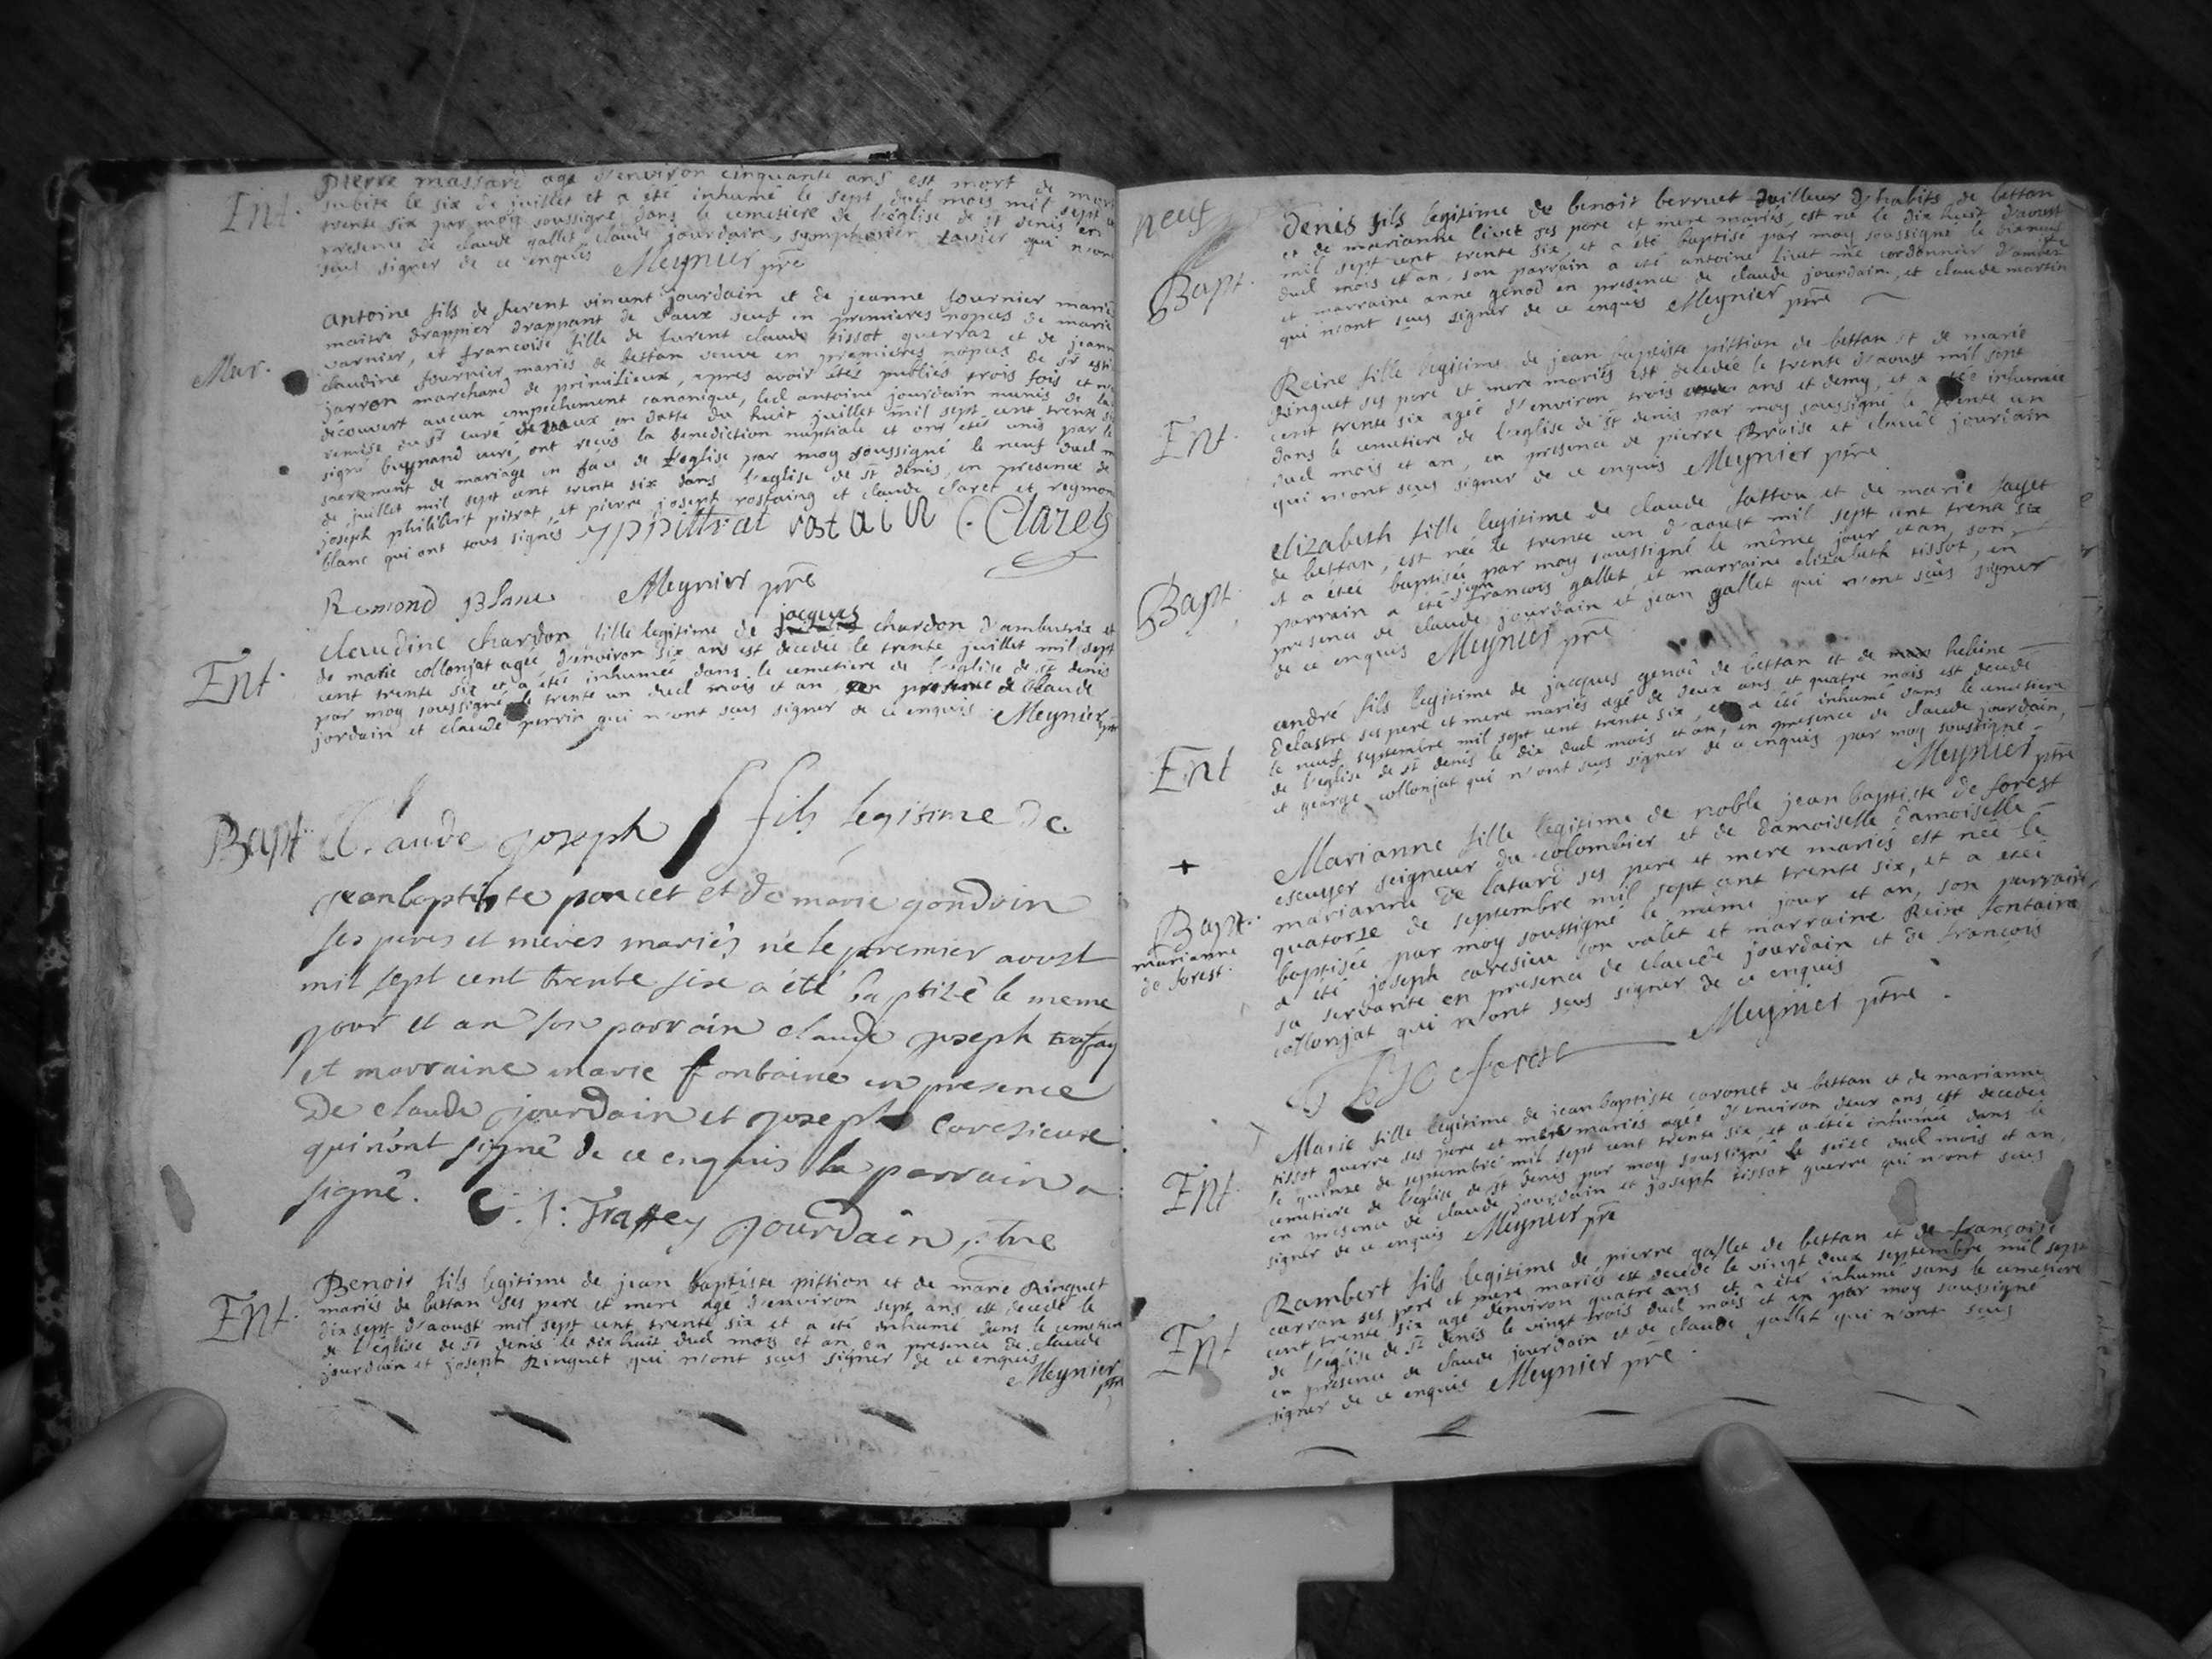 Ent.
pierre massard agé d'environ cinquante ans est mort de mort
subite le six de juillet et a été inhumé le sept dud mois mil sept
trente six par moy soussigné dans le cemetiere de l'église de st denis en
presence de claude gallet claude jourdain, symphorien qui n'ont
sçus signer de ce enquis Meynier ptre
Mar.
antoine fils de furent vincent jourdain et de jeanne fournier mariés
maitre drappier drappant de vaux veuf en premieres nopces de marie
varnier, et francoise fille de furent claude tissot guerraz et de jeanne
claudine fournier mariés de bettan veuve en premieres nopces de sr
jarron marchand de primilieux, apres avoir étés publiés trois fois et
découvert aucun empechement canonique, led antoine jourdain munis de la
remise du sr curé de vaux en datte du huit juillet mil sept cent trente
signé bugnand curé, ont reçus la benediction nuptiale et ont étés unis par le
sacrement de mariage en face de l'eglise par moy soussigné le neuf dud
de juillet mil sept cent trente six dans l'eglise de st denis, en presence de
joseph philibert pitrat, et pierre joseph rostaing et claude claret et reymon
blanc qui ont tous signés JPpittrat rostain C. Claret
Remond Blanc Meynier ptre
Ent.
claudine chardon fille legitime de jacques chardon d'ambutrix et
de marie collonjat agée d'environ six ans est decedée le trente juillet mil sept
cent trente six et a étée inhumée dans le cemetiere de l'eglise de st denis
par moy soussigné le trente un dud mois et an en presence de claude
jordain et claude perrin qui n'ont sçus signer de ce enquis Meynier ptre
Bapt.
Claude joseph fils legitime de
jean baptiste poncet et de marie gondrin
ses peres et meres mariés né le premier aoust
mil sept cent trente six a été baptizé le meme
jour et an son parrain claude joseph trafay
et marraine marie fontaine en presence
de claude jourdain et joseph caresieux
qui n'ont signé de ce enquis le parrain a
signé. C. J. Traffey jourdain, ptre
Ent.
Benoit fils legitime de jean baptiste pittion et de marie Ringuet
mariés de bettan ses pere et mere agé d'environ sept ans est decedé le
dix sept d'aoust mil sept cent trente six et a été inhumé dans le cemetiere
de l'eglise de st denis le dix huit dud mois et an en presence de claude
jourdain et joseph Ringuet qui n'ont sçus signer de ce enquis
Meynier ptre
neuf
Bapt.
Denis fils legitime de benoit berruet tailleur d'habits de bettan
et de marianne livet ses pere et mere mariés est né le dix huit d'aoust
mil sept cent trente six et a été baptisé par moy soussigné le
dud mois et an, son parrain a été antoine livet me cordonnier
et marraine anne genod en presence de claude jourdain, et claude martin
qui n'ont sçus signer de ce enquis Meynier ptre
Ent.
Reine fille legitime de jean baptiste pittion de bettan et de marie
Ringuet ses pere et mere mariés est decedée le trente d'aoust mil sept
cent trente six agée d'environ trois ans et demy, et a étée inhumée
dans le cemetiere de l'eglise de st denis par moy soussigné le trente un
dud mois et an, en presence de pierre Braise et claude jourdain
qui n'ont sçus signer de ce enquis Meynier ptre
Bapt.
elizabeth fille legitime de claude fatton et de marie sayet
de bettan, est née le trente un d'aoust mil sept cent trente six
et a étée baptisée par moy soussigné le même jour et an, son
parrain a été jean francois gallet et marraine elizabeth tissot, en
presence de claude jourdain et jean gallet qui n'ont sçus signer
de ce enquis Meynier ptre
Ent
andré fils legitime de jacques genod de bettan et de hebine
delastre ses pere et mere mariés agé de deux ans et quatre mois est decedé
le neuf septembre mil sept cent trente six, et a été inhumé dans le cemetiere
de l'eglise de st denis le dix dud mois et an, en presence de claude jourdain,
et george collonjat qui n'ont sçus signer de ce enquis par moy soussigné
Meynier ptre
+
Bapt.
marianne
de forest.
Marianne fille legitime de noble jean baptiste de forest
escuyer seigneur du colombier et de damoiselle damoiselle
marianne de latard ses pere et mere mariés est née le
quatorze de septembre mil sept cent trente six, et a étée
baptisée par moy soussigné le même jour et an, son parrain
a été joseph caresieu son valet et marraine Reine fontaine
sa servante en presence de claude jourdain et de françois
collonjat qui n'ont sçus signer de ce enquis
Meynier ptre.
de forest
Ent.
Marie fille legitime de jean baptiste coronet de bettan et de marianne
tissot guerre ses pere et mere mariés agée d'environ deux ans est decedée
le quinze de septembre mil sept cent trente six, et a étée inhumée dans le
cemetiere de l'eglise de st denis par moy soussigné le seize dud mois et an,
en presence de claude jourdain et joseph tissot guerre qui n'ont sçus
signer de ce enquis Meynier ptre
Ent
Rambert fils legitime de pierre gallet de bettan et de françoise
carron ses pere et mere mariés est decedé le vingt deux septembre mil sept
cent trente six agé d'environ quatre ans et a été inhumé dans le cemetiere
de l'eglise de st denis le vingt trois dud mois et an par moy soussigné
en presence de claude jourdain et de claude gallet qui n'ont sçus
signer de ce enquis Meynier ptre.